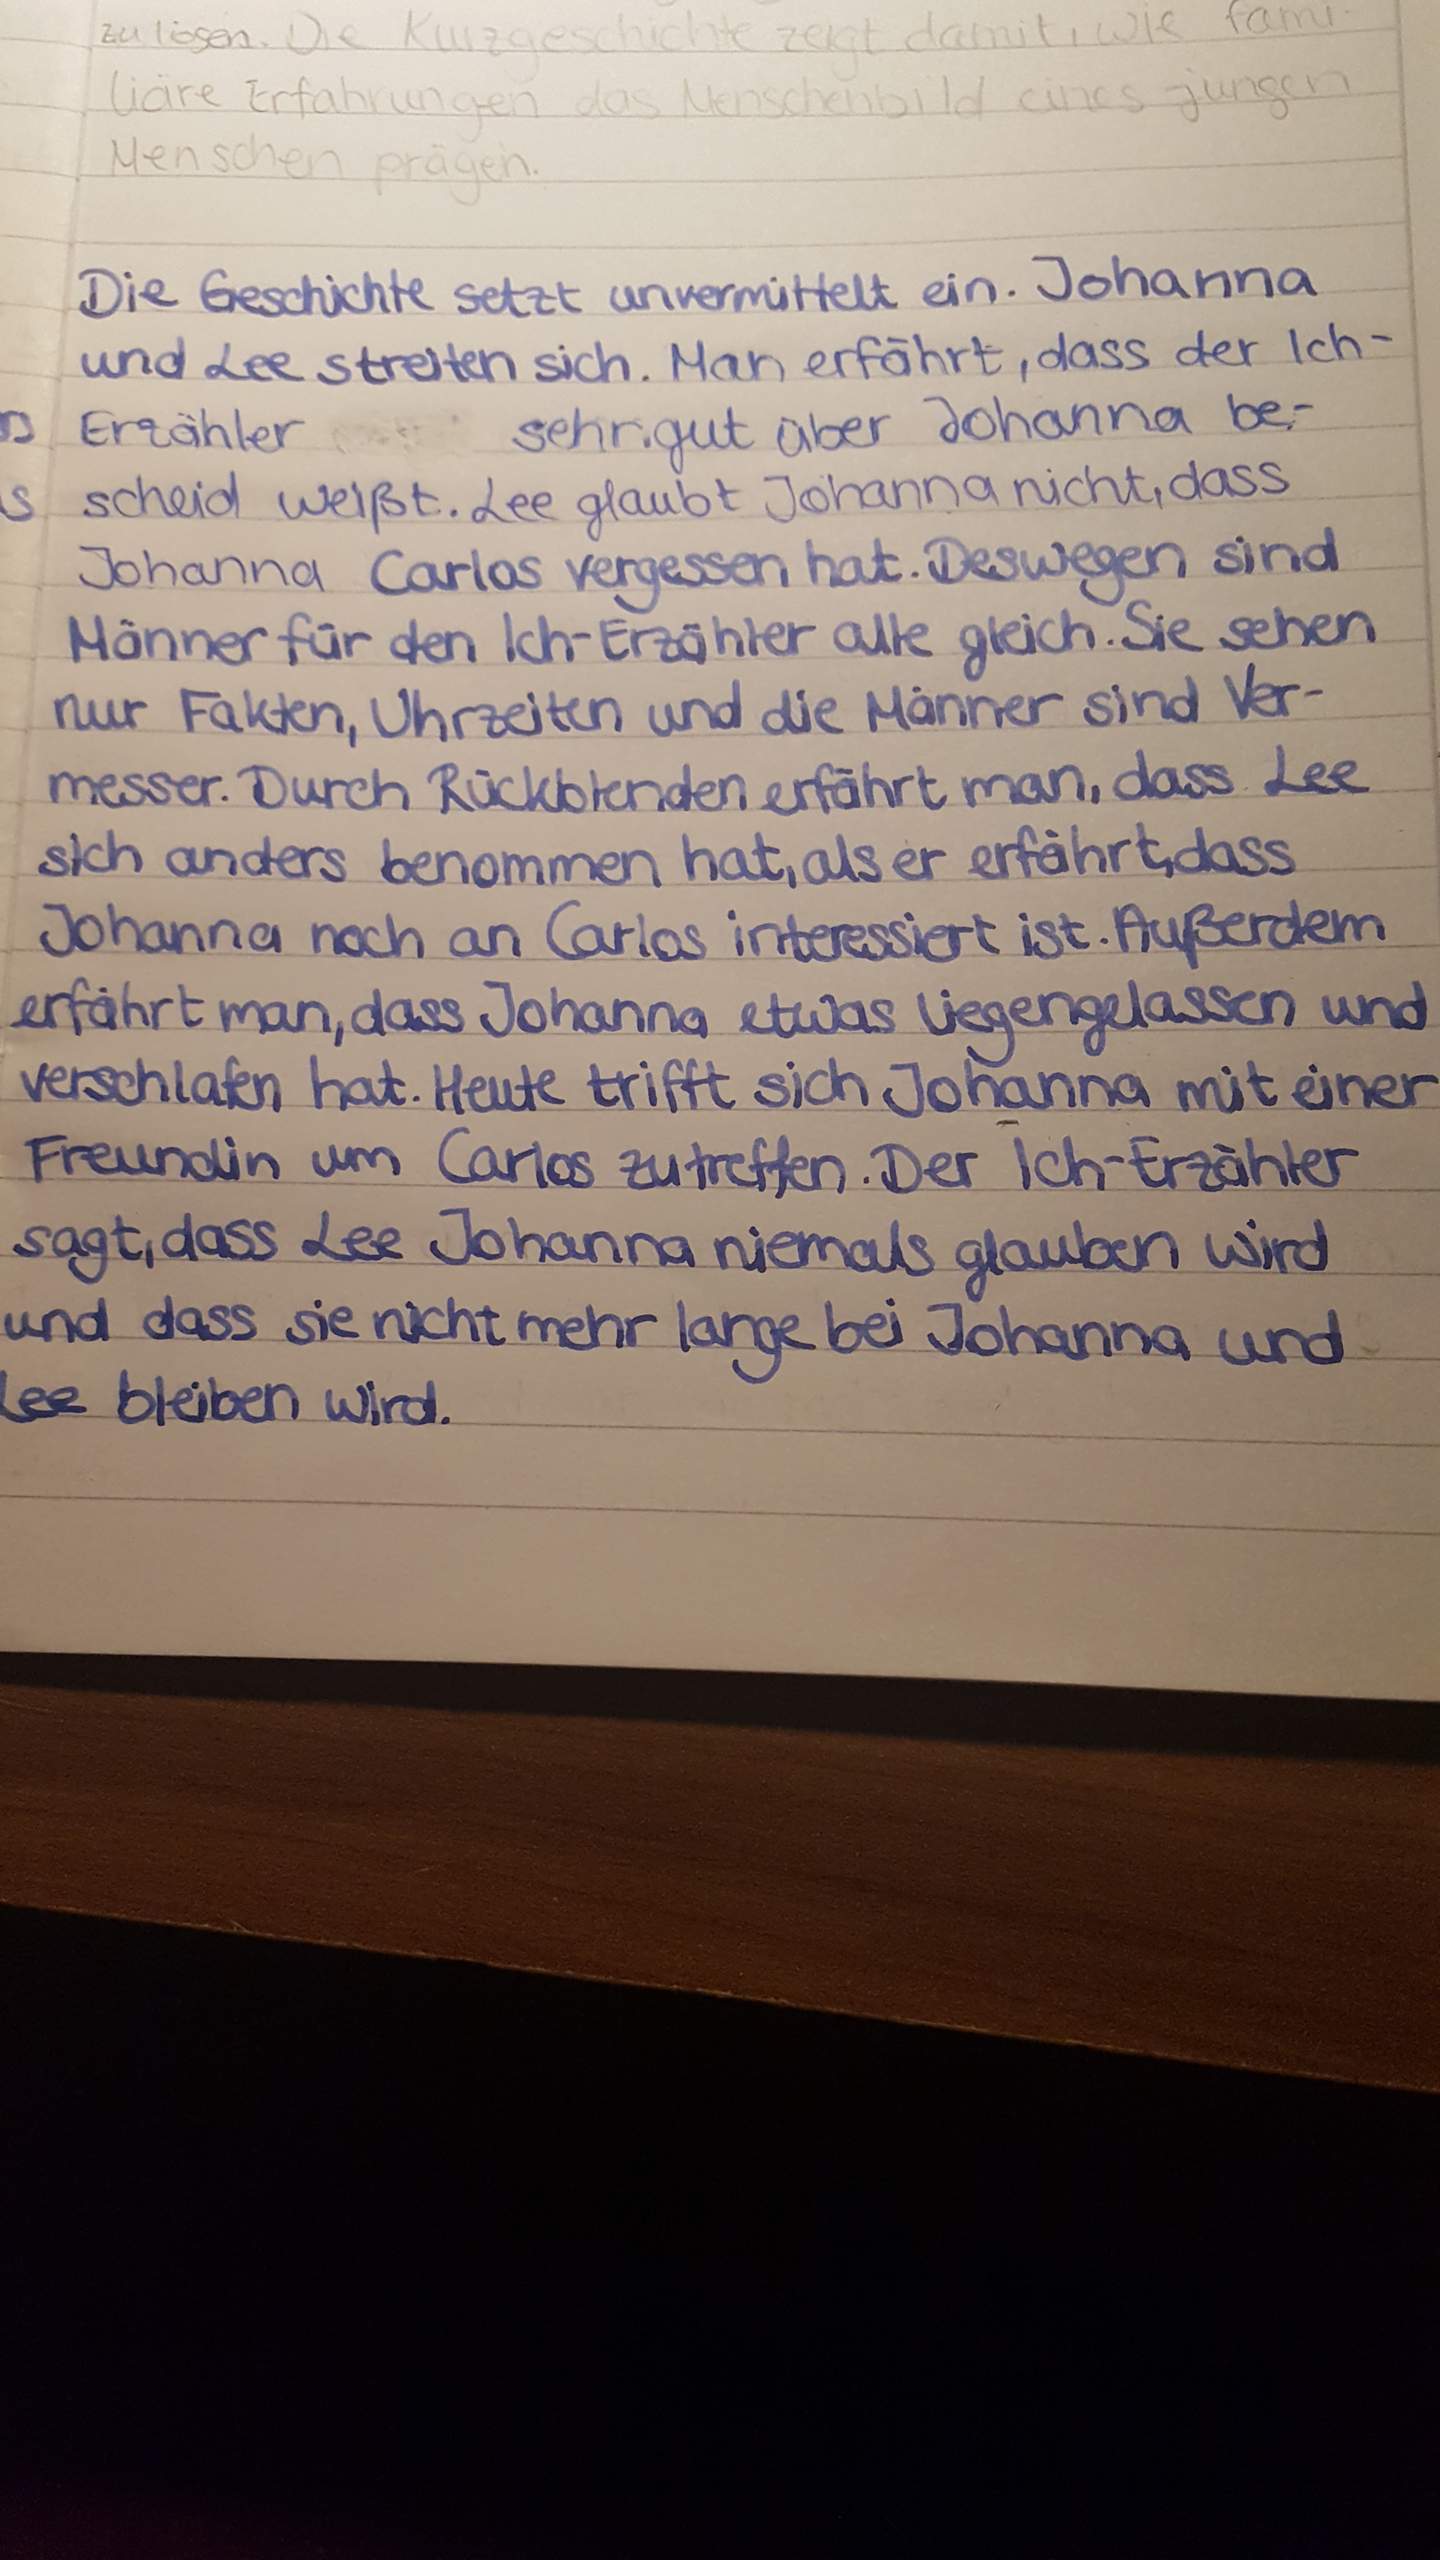 zu lösen. Die Kurzgeschichte zeigt damit, wie fami-
liäre Erfahrungen das Menschenbild eines jungen
Menschen prägen.
Die Geschichte setzt unvermittelt ein. Johanna
und Lee streiten sich. Man erfährt, dass der Ich-
Erzähler sehr gut über Johanna be-
scheid weißt. Lee glaubt Johanna nicht, dass
Johanna Carlos vergessen hat. Deswegen sind
Männer für den Ich-Erzähler alle gleich. Sie sehen
nur Fakten, Uhrzeiten und die Männer sind Ver-
messer. Durch Rückblenden erfährt man, dass Lee
sich anders benommen hat, als er erfährt, dass
Johanna noch an Carlos interessiert ist. Außerdem
erfährt man, dass Johanna etwas liegengelassen und
verschlafen hat. Heute trifft sich Johanna mit einer
Freundin um Carlos zu treffen. Der Ich-Erzähler
sagt, dass Lee Johanna niemals glauben wird
und dass sie nicht mehr lange bei Johanna und
Lee bleiben wird.